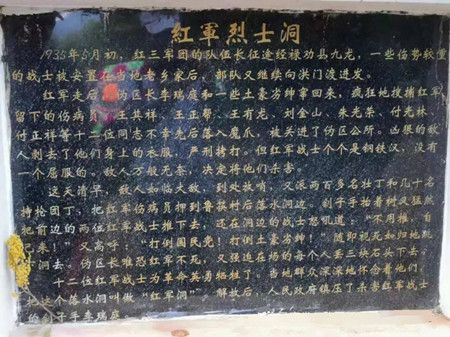 紅軍烈士洞
1935年5月初，红三军团的队伍长征途经禄劝县九龙，一些伤势较重
的战士被安置在当地老乡家后，部队又继续向洪门渡进发。
红军走后，伪区长李瑞庭和一些土豪劣绅窜回来，疯狂地搜捕红军
留下的伤病员，王其祥、王正帮、王有龙、刘金山、朱光荣、付光林、
付正祥等十二位同志不幸先后落入魔爪，被关进了伪区公所。凶狠的敌
人剥去了他们身上的衣服，严刑拷打。但红军战士个个是钢铁汉，没有
一个屈服的。敌人万般无奈，决定将他们杀害。
这天清早，敌人如临大敌，到处放哨，又派两百多名壮丁和几十名
持枪团丁，把红军伤病员押到鲁筷村后落水洞边，刽子手
把前边的两位红军战士推下去，还
己来！”又高呼：“打倒国民党！打倒土豪劣绅！”随即视死如归地跳
下洞去。伪区长唯恐红军战士不死，又强迫在场的每个人丢三块石头下去。
十二位红军战士为革命英勇牺牲了。当地群众深深地怀念着他们，
把这个落水洞叫做“红军洞”。解放后，人民政府镇压了杀害红军战士
的刽子手李瑞庭。